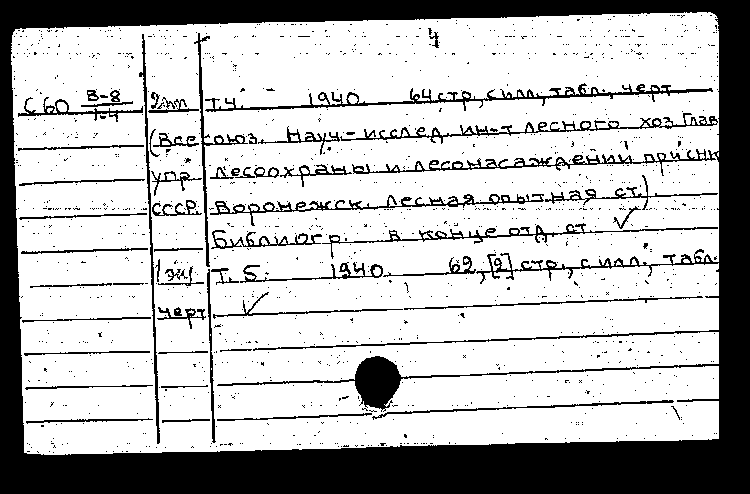 4
С60 В-8/1-4 2эт Т.4. 1940. 64 стр, с илл, табл., черт
(Всесоюз. Науч.-исслед. ин-т лесного хоз. Глав
упр. лесоохраны и лесонасаждений при СНК
СССР. Воронежск. лесная опытная ст.)
Библиогр. в конце отд. ст. ✓
1 эк Т. 5. 1940. 62, [2] стр., с илл., табл.
черт. ✓